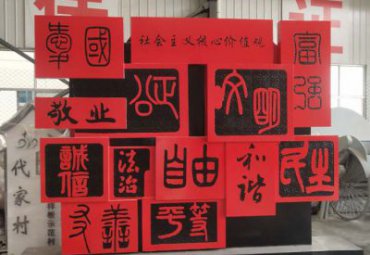 社会主义核心价值观
愛國
富强
敬业
公正
文明
誠信
法治
自由
和谐
民主
友善
平等
代家村